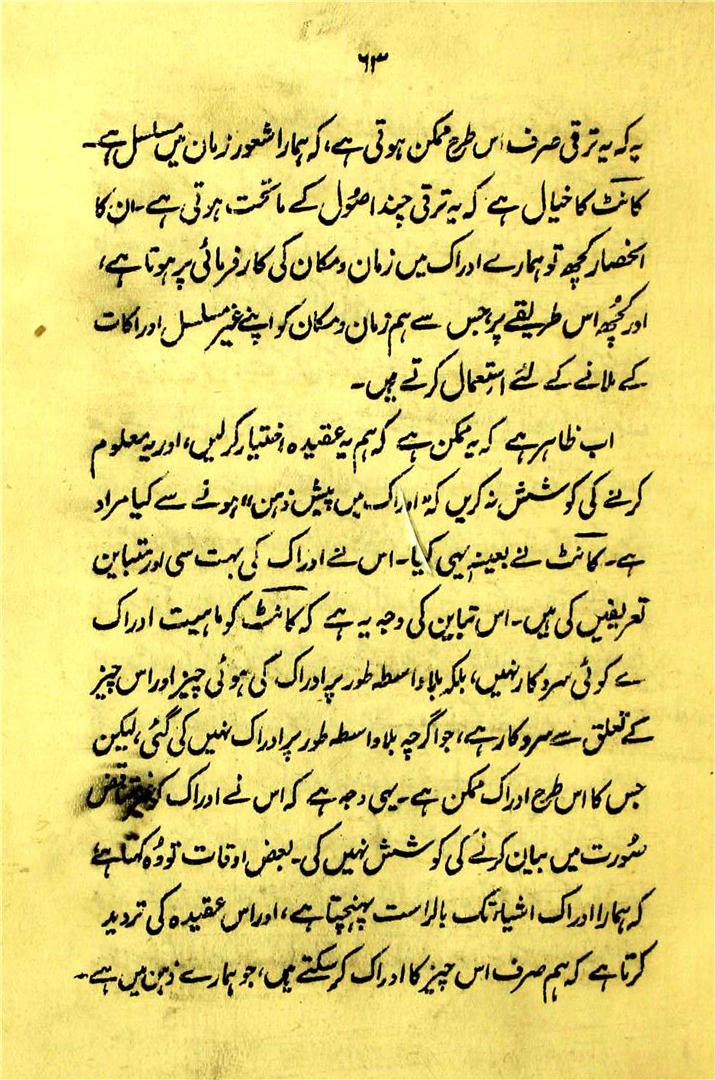 ۶۳
یہ کہ یہ ترقی صرف اس طرح ممکن ہوتی ہے، کہ ہمارا شعور زمان میں مسلسل ہے۔
کانٹ کا خیال ہے کہ یہ ترقی چند اصُول کے ماتحت ہوتی ہے۔ ان کا
انحصار کچھ تو ہمارے ادراک میں زمان و مکان کی کارفرمائی پر ہوتا ہے،
اور کچُھ اس طریقے پر، جس سے ہم زمان و مکان کو اپنے غیر مسلسل ادراکات
کے ملانے کے لئے استعمال کرتے ہیں۔
اب ظاہر ہے کہ یہ ممکن ہے کہ ہم یہ عقیدہ اختیار کر لیں، اور یہ معلوم
کرنے کی کوشش نہ کریں کہ "ادراک میں پیش ذہن" ہونے سے کیا مراد
ہے۔ کانٹ نے بعینہٖ یہی کیا۔ اس نے ادراک کی بہت سی اور متباین
تعریفیں کی ہیں۔ اس تباین کی وجہ یہ ہے کہ کانٹ کو ماہیت ادراک
سے کوئی سروکار نہیں، بلکہ بلاواسطہ طور پر ادراک کی ہوئی چیز اور اس چیز
کے تعلق سے سروکار ہے، جو اگرچہ بلاواسطہ طور پر ادراک نہیں کی گئی، لیکن
جس کا اس طرح ادراک ممکن ہے۔ یہی وجہ ہے کہ اس نے ادراک کو
صُورت میں بیان کرنے کی کوشش نہیں کی۔ بعض اوقات تو وُہ کہتا ہے
کہ ہمارا ادراک اشیاء تک بالراست پہنچتا ہے، اور اس عقیدہ کی تردید
کرتا ہے کہ ہم صرف اس چیز کا ادراک کر سکتے ہیں، جو ہمارے ذہن میں ہے۔